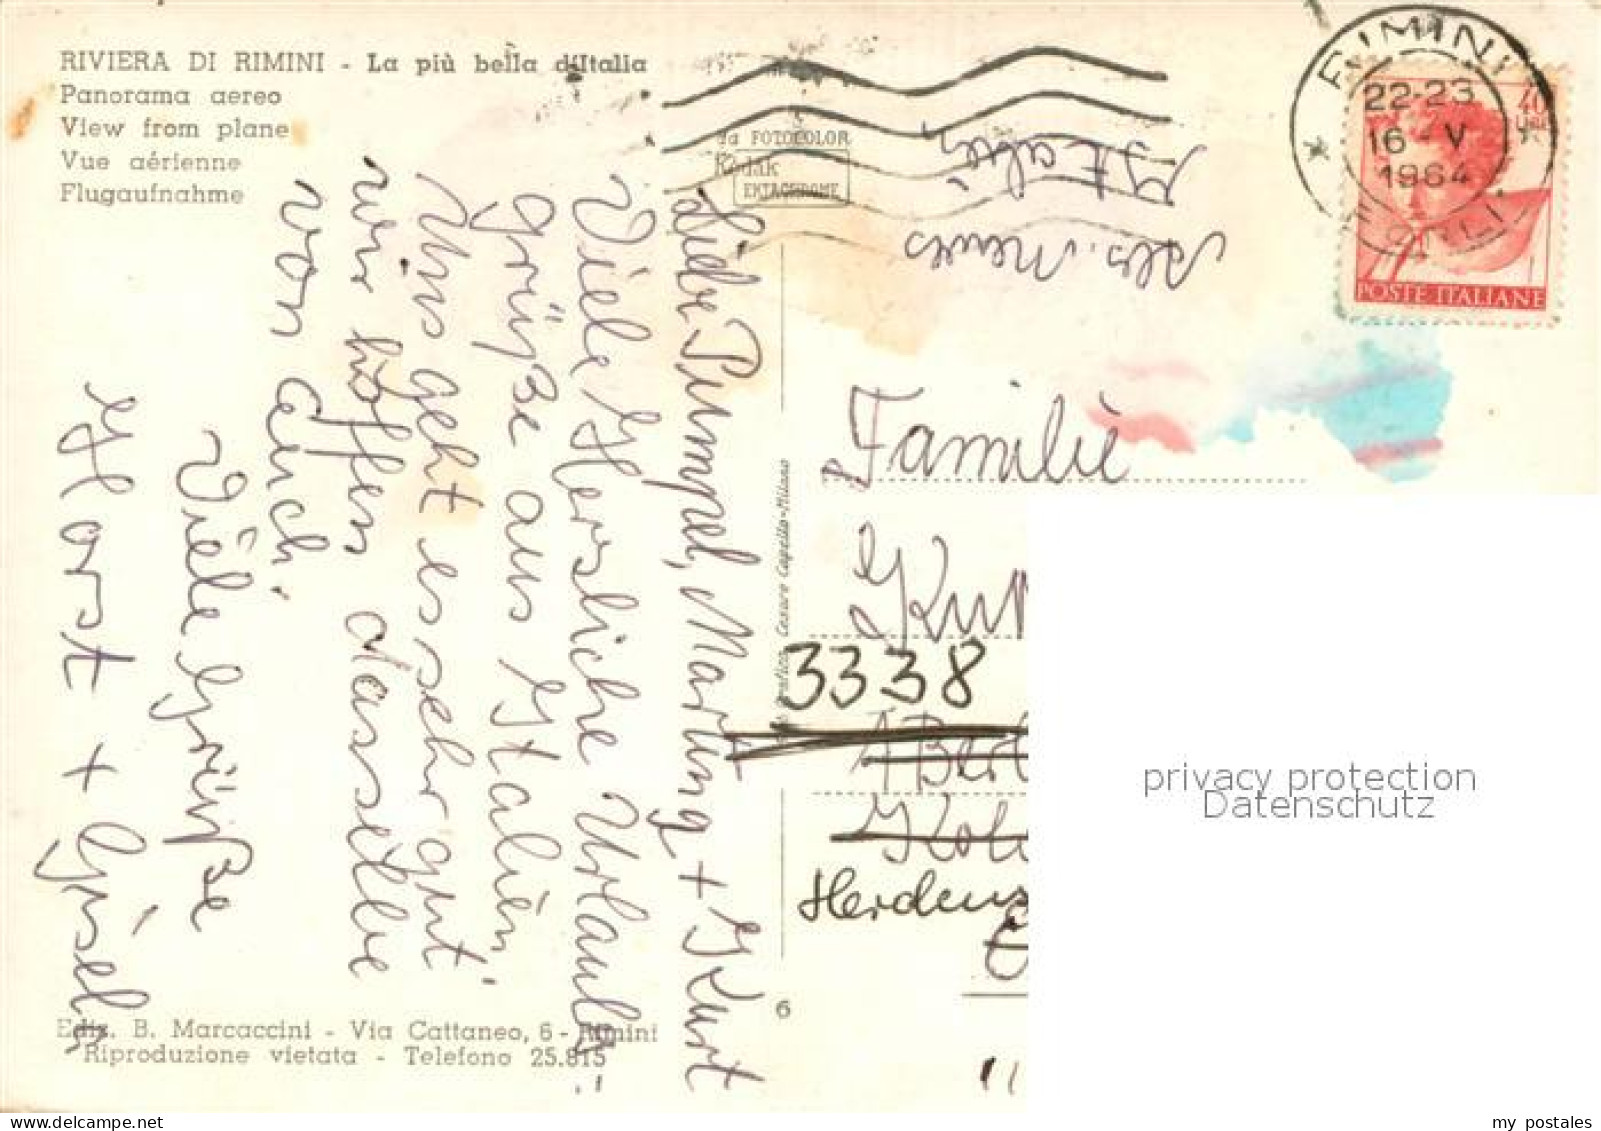 RIVIERA DI RIMINI - La più bella d'Italia
Panorama aereo
View from plane
Vue aérienne
Flugaufnahme
FOTOCOLOR
Kodak
EKTACHROME
RIMINI
22-23
16 V
1964
40
LIRE
POSTE ITALIANE
Italien
Liebe Pumpel, Martung + Kurt
Viele Herzliche Urlaubs
grüße aus Italien
Uns geht es sehr gut
wir hoffen dasselbe
von euch.
Viele Grüße
Horst + Gisela
Cesare Capello-Milano
Familie
3338
6
Ediz. B. Marcaccini - Via Cattaneo, 6 - Rimini
Riproduzione vietata - Telefono 25.815
privacy protection
Datenschutz
delcampe.net
my_postales